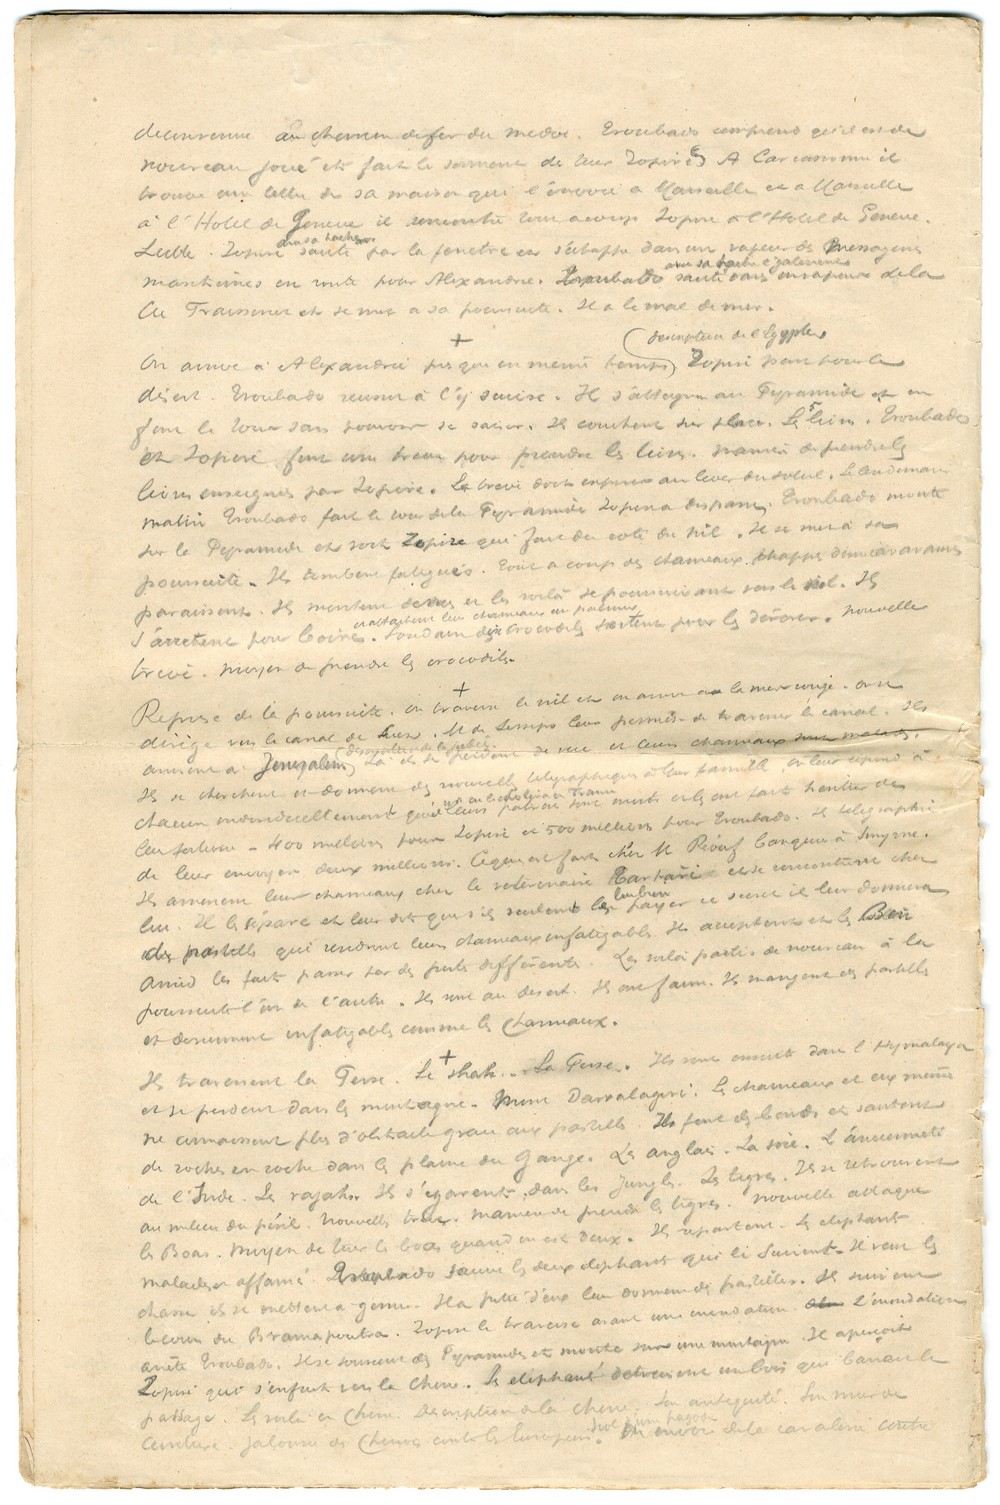 au chemin de fer du medoc. Troubado comprend qu'il est de
nouveau joué et fait le serment de tuer Zopire. A Carcassonne il
trouve une lettre de sa maison qui l'envoie a Marseille et a Marseille
à l'Hotel de Geneve il rencontre tout a coup Zopire a l'Hotel de Geneve.
Lutte. Zopire saute par la fenetre et s'échappe dans un vapeur des Messageries
maritimes en route pour Alexandrie. Troubado saute dans un vapeur de la
Cie Fraissinet et se met a sa poursuite. Il a le mal de mer.
+
(description de l'Egypte)
On arrive à Alexandrie presque en meme temps Zopire part pour le
désert. Troubado reussit à l'y suivre. Ils s'attaque au Pyramide et en
font le tour sans pouvoir se saisir. Ils couchent sur place. Les 5 lions. Troubado
et Zopire font une treve pour prendre les lions. maniere de prendre les
lions enseignée par Zopire. La treve doit expirer au lever du soleil. Le lendemain
matin Troubado fait le tour de la Pyramide Zopire a disparu. Troubado monte
sur la Pyramide et voit Zopire qui fuit du coté du Nil. Il se met à sa
poursuite. Ils tombent fatigués. Tout a coup des chameaux échappés d'une caravane
paraissent. Ils montent dessus et les voilà se poursuivant vers le Nil. Ils
s'arretent pour boire. et attachent leur chameaux au palmier Soudain dix crocodiles sortent pour les dévorer. nouvelle
treve. moyen de prendre les crocodiles.
+
Reprise de la poursuite. on traverse le nil et on arrive a la mer rouge. on se
dirige vers le canal de Suez. M de Lesseps leur permet de traverser le canal. Ils
arrivent a Jerusalem (description de la ville) Là ils se perdent de vue et leurs chameaux sont malades.
Ils se cherchent et donnent des nouvelles télégraphiques à leur famille, on leur repond à
chacun individuellement que leurs patrons sont morts et les ont faits heritier de
leur fortune - 400 millions pour Zopire et 500 millions pour Troubado. Ils telegraphient
de leur envoyer deux millions. Ce qui est fait chez M Réouf banquier à Smyrne.
Ils amenent leur chameaux chez le veterinaire et se rencontrent chez
lui. Il les sépare et leur dit que s'ils veulent bien payer ce secret il leur donnera
des pastilles qui rendront leurs chameaux infatigables. Ils acceptent et les
fait passer par des portes différentes. Les voilà partis de nouveau à la
poursuite l'un de l'autre. Ils sont au desert. Ils ont faim. Ils mangent des pastilles
et deviennent infatigables comme les chameaux.
+
Ils traversent la Perse. Le shah. La Perse. Ils sont ensuite dans l'Hymalaya
et se perdent dans les montagnes. Mont Dawalagiri. Les chameaux et eux meme
ne connaissent plus d'obstacle grace aux pastilles. Ils font des bonds et sautent
de roches en roche dans la plaine du Gange. Les anglais. La soie. L'ancienneté
de l'Inde. Les rajahs. Ils s'égarent dans les jungles. Les tigres. Ils se retrouvent
au milieu du péril. nouvelle treve. maniere de prendre les tigres. nouvelle attaque
les Boas. moyen de tuer le boa quand on est deux. Ils repartent. Les elephant
malades et affamé. Troubado sauve les deux elephant qui le suivent. Il veut les
chasser ils se mettent a genoux. Il a pitié d'eux leur donnent des pastilles. Ils suivent
le cours du Bramapoutra. Zopire le traverse avant une inondation. L'inondation
arrête Troubado. Il se souvient des Pyramides et monte sur une montagne. Il aperçoit
Zopire qui s'enfuit vers la Chine. Les elephant detruisent un bois qui barrait le
passage. Les voilà en Chine. Description de la Chine. Son antiquité. Son mur de
ceinture. Jalousie des Chinois contre les Europeens. On envoie de la cavalerie contre